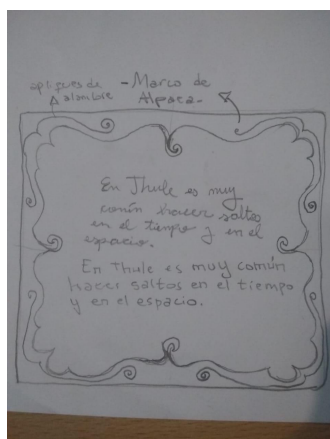 apliques de
alambre
- Marco de
Alpaca -
En Thule es muy
común hacer saltos
en el tiempo y en el
espacio.
En Thule es muy común
hacer saltos en el tiempo
y en el espacio.